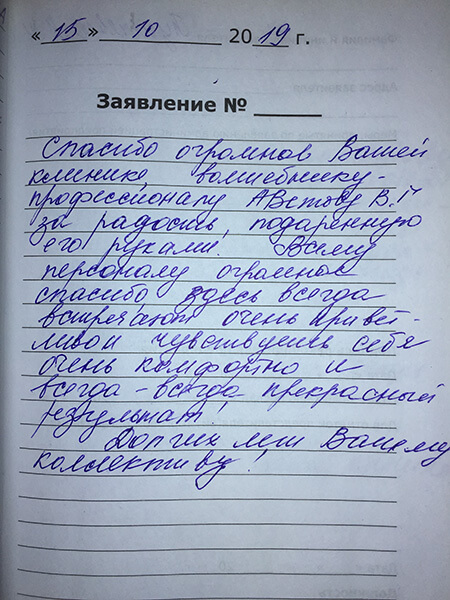 « 15 » 10 2019 г.
Заявление №
Спасибо огромное Вашей
клинике волшебнику-
профессионалу Аветову В.Г
за радость, подаренную
его руками! Всему
персоналу огромное
спасибо здесь всегда
встречают очень привет-
ливой чувствуешь себя
очень комфортно и
всегда-всегда прекрасный
результат!
Долгих лет Вашему
коллективу!